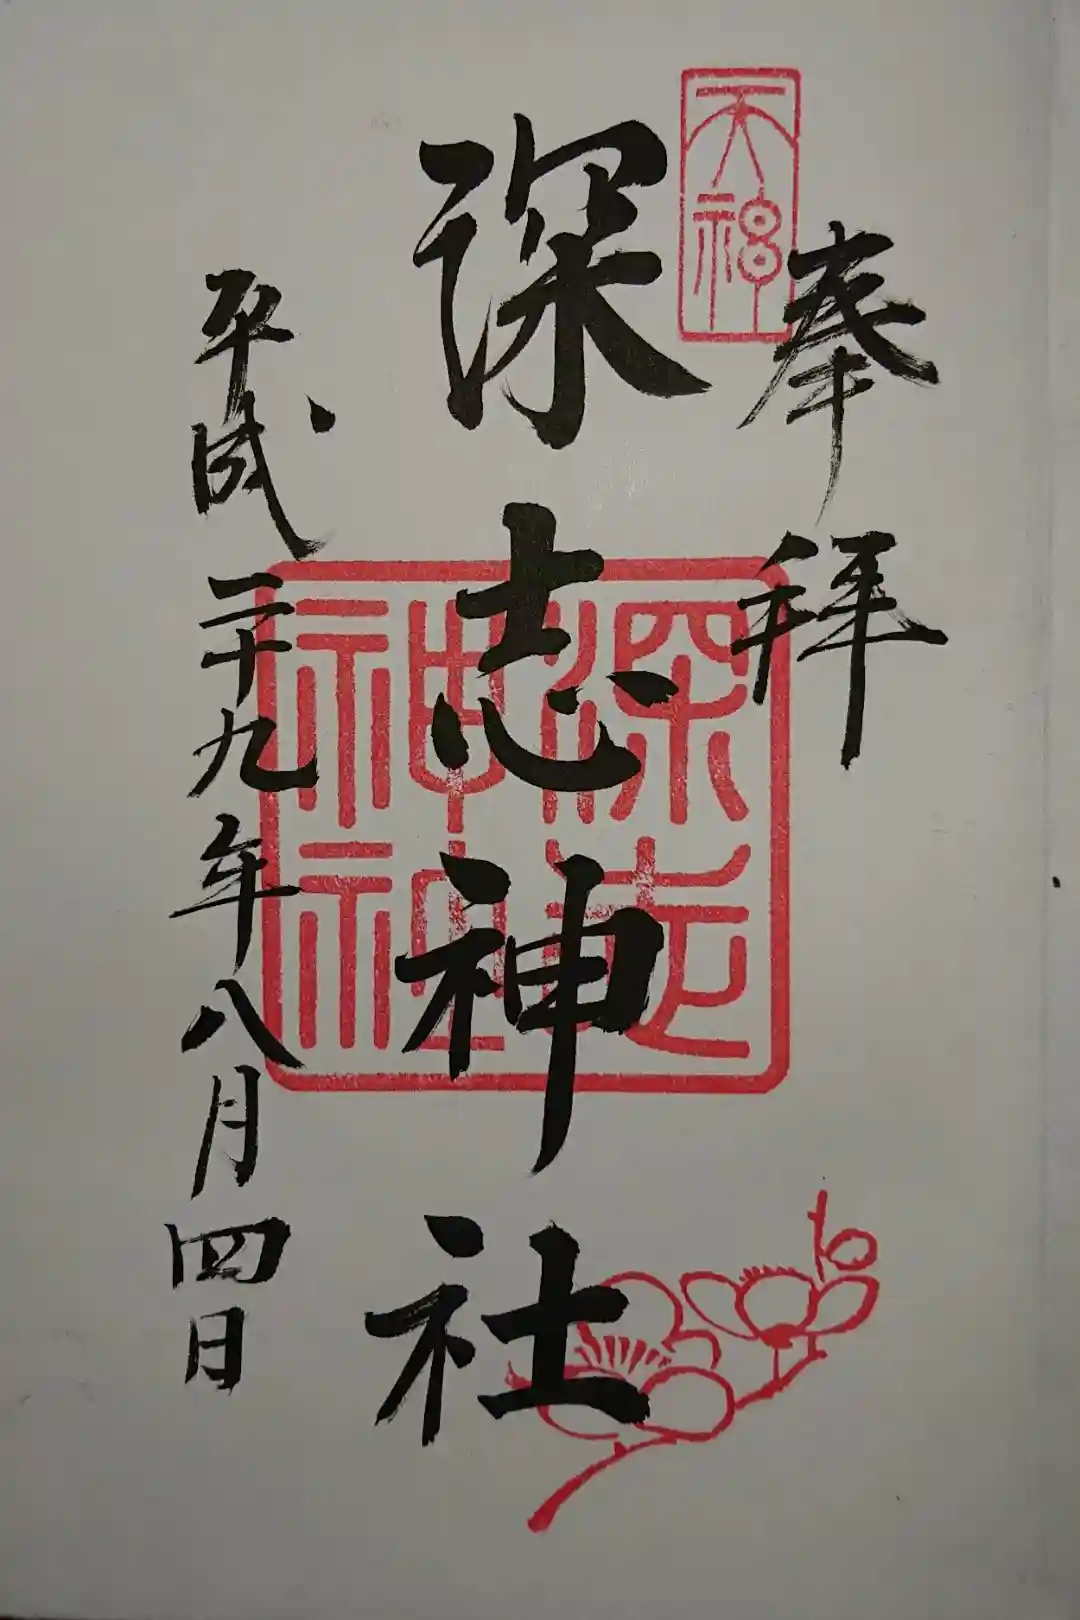 天神
奉拝
深志神社
深志
神社
平成二十九年八月四日